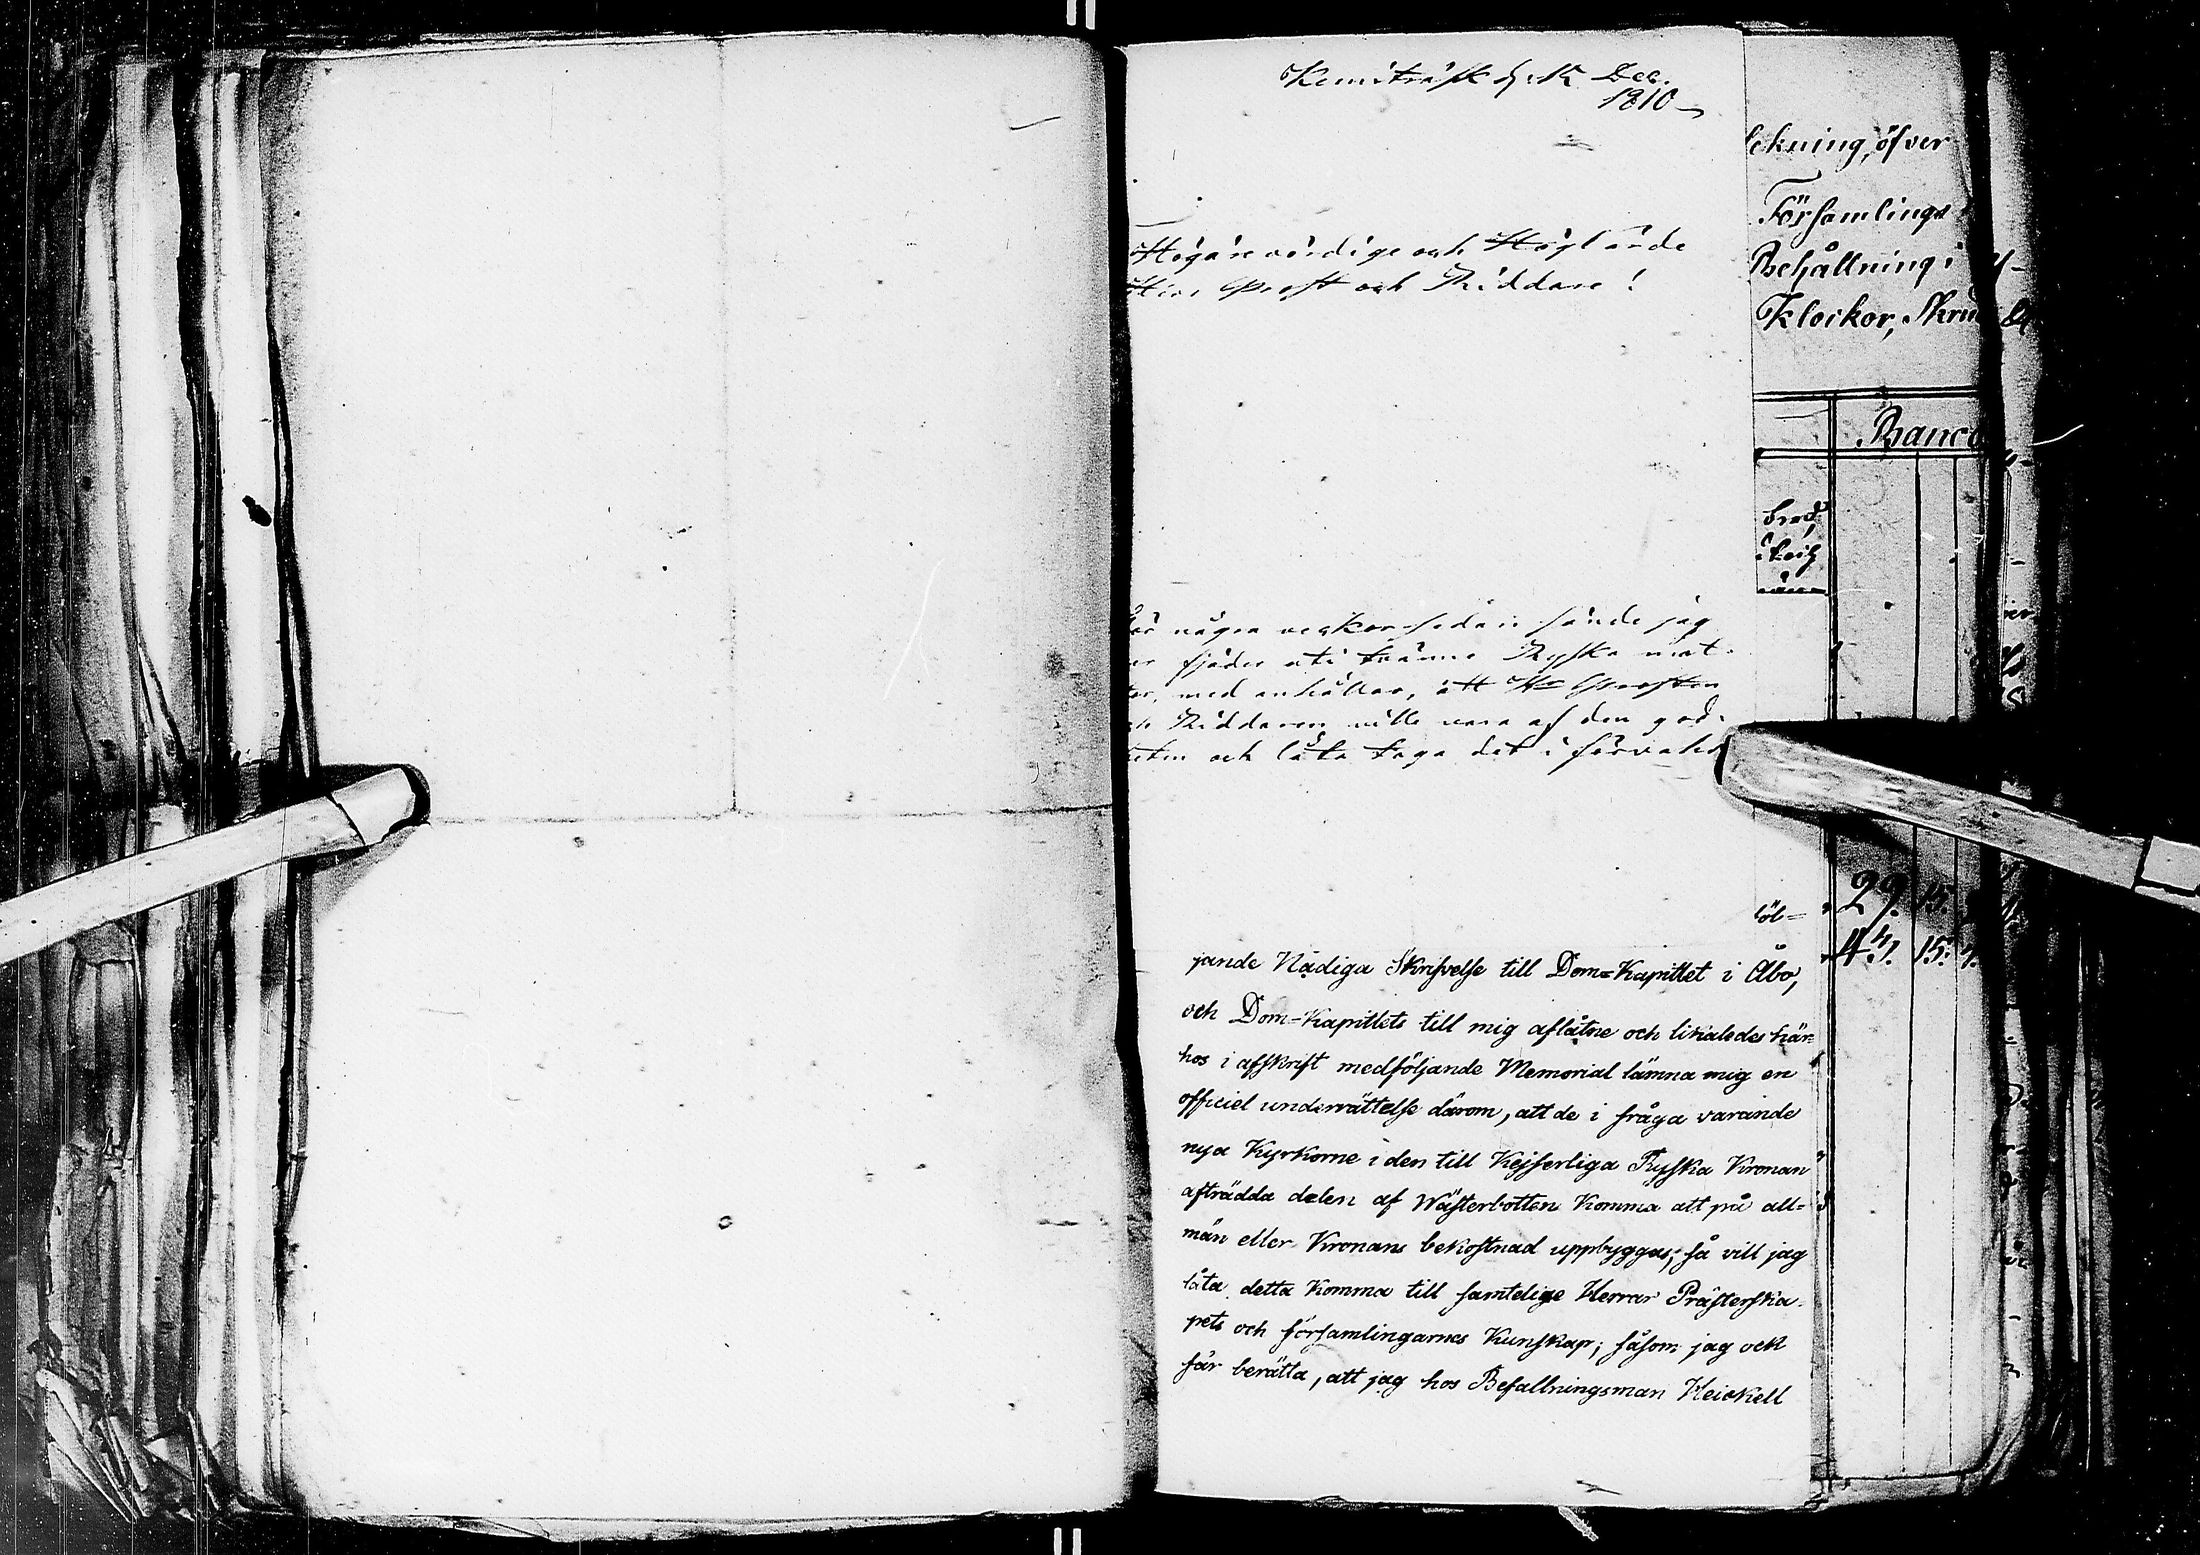 Kemiträsk d. 15 Dec.
1810
Högärevördige och Höglärde
Herr Prost och Riddare!
För några veckor sedan sände jag
fjäder uti tvänne Ryska mat-
tor, med anhållan, att Hr Prosten
och Riddaren ville vara af den god-
heten och låta taga det i förvahr
föl=
jande Nådiga Skrifvelse till Dom=Kapitlet i Åbo,
och Dom=Kapitlets till mig aflåtne och likaledes här=
hos i afskrift medföljande Memorial lämna mig en
officiel underrättelse därom, att de i fråga varande
nya Kyrkorne i den till Kejserliga Ryska Kronan
afträdda delen af Wästerbotten Komma att på all=
män eller Kronans bekostnad uppbyggas; så vill jag
låta detta Komma till samtelige Herrar Prästerska=
pets och församlingarnes Kunskap; såsom jag ock
får berätta, att jag hos Befallningsman Heickell
ekning, öfver
Församlings
Behållning i
Klockor, Skrud
Banco
bred
29. 15.
44. 15.